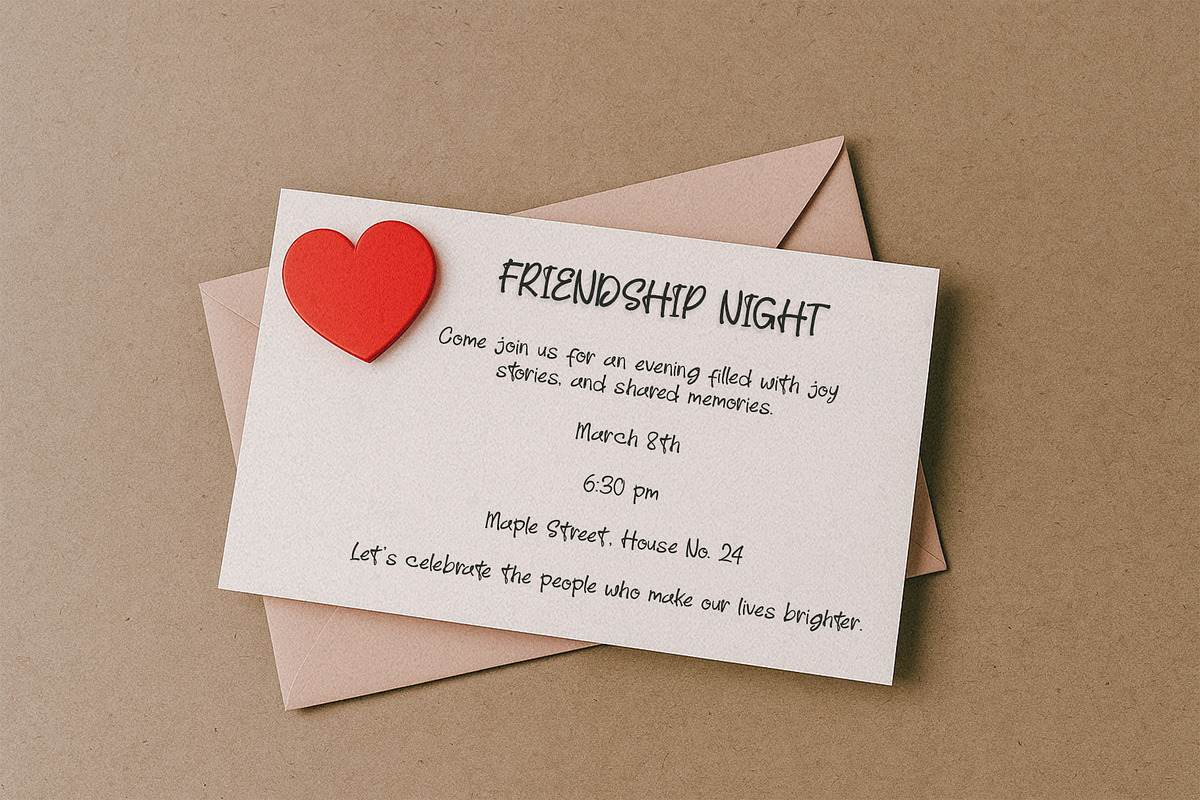 FRIENDSHIP NIGHT
Come join us for an evening filled with joy
stories, and shared memories.
March 8th
6:30 pm
Maple Street, House No. 24
Let's celebrate the people who make our lives brighter.